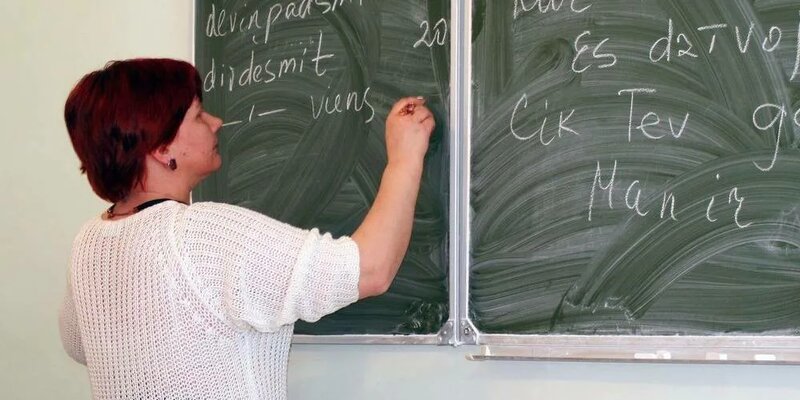 deviņpadsmi
divdesmit 20
—"— viens
Es dzīvo
Cik Tev ga
Man ir